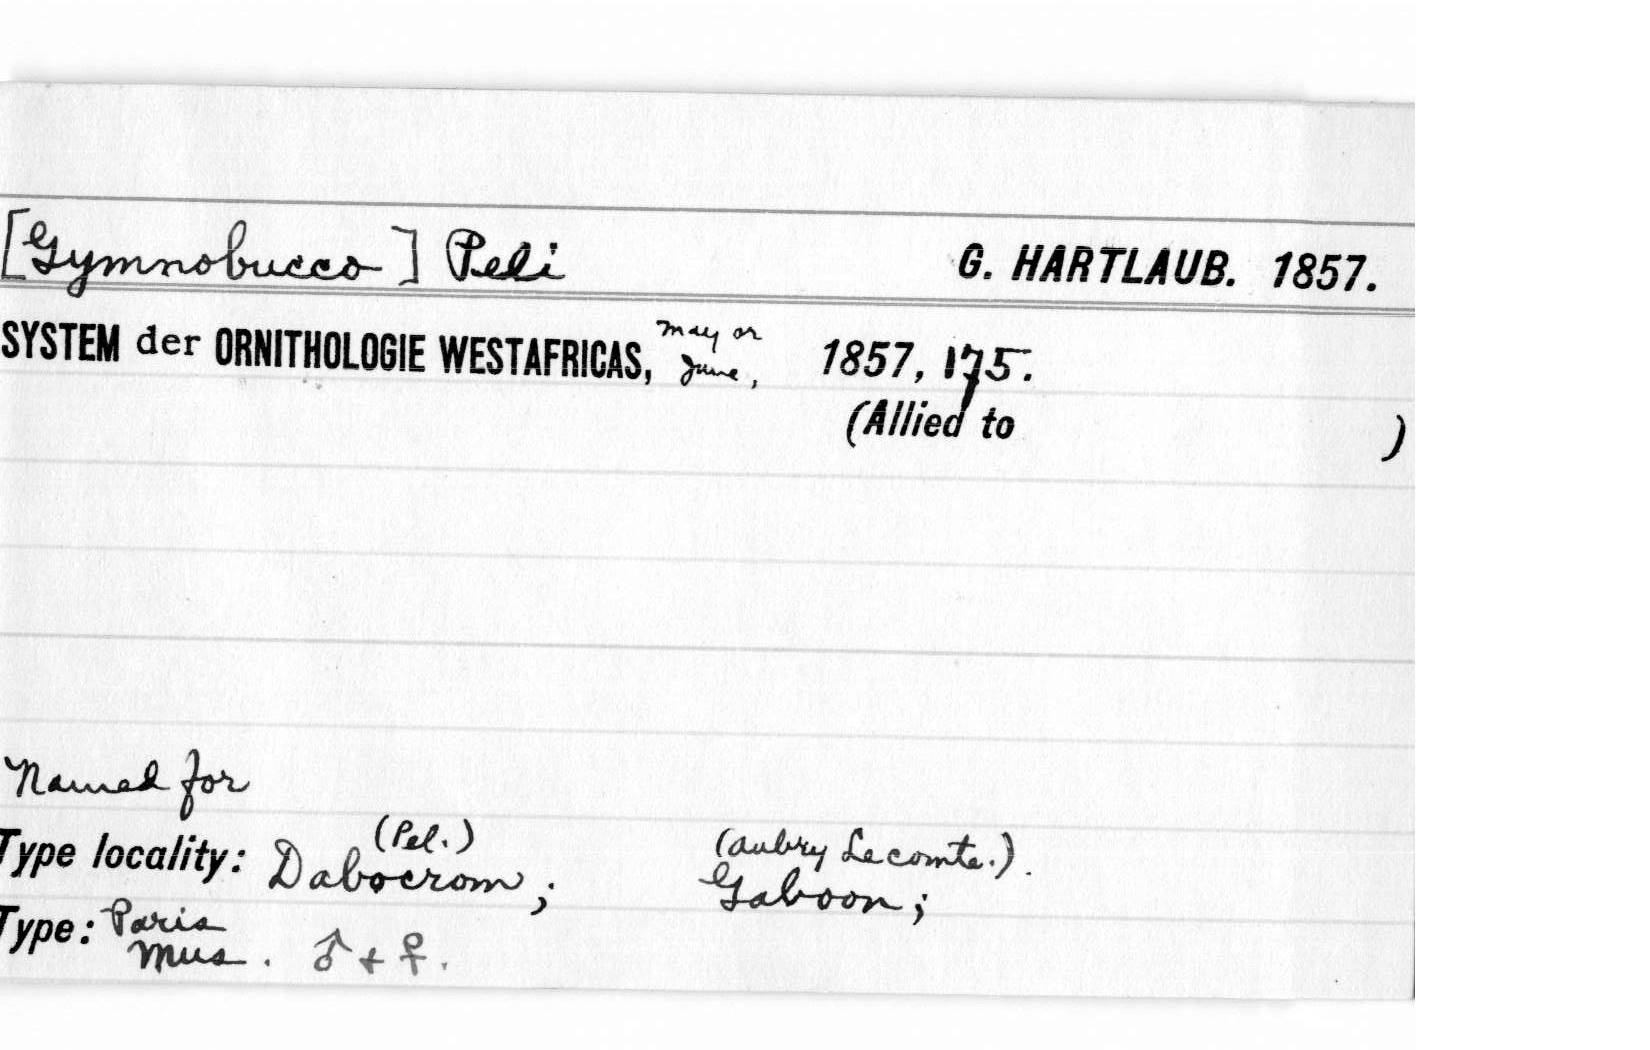 [Gymnobucco] Peli G. HARTLAUB. 1857.
SYSTEM der ORNITHOLOGIE WESTAFRICAS, May or June, 1857, 175.
(Allied to )
Named for
(Pel.) (Aubry Lecomte.).
Type locality: Dabocrom; Gaboon;
Type: Paris Mus. ♂ + ♀.